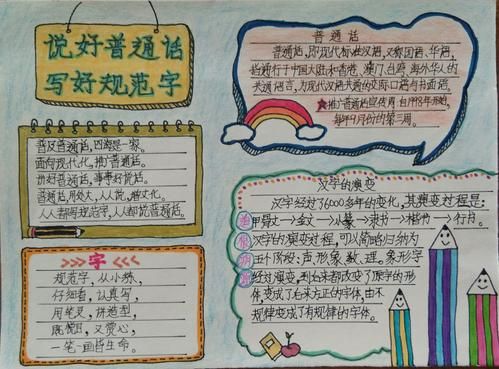 说好普通话
写好规范字
普通话
普通话,即现代标准汉语,又称国语、华语,
普通行于中国大陆和香港、澳门、台湾,海外华人的
共通语言,为现代汉语共通的交际口语与书面语。
推广普通话宣传周 自1998年开始,
每年9月份的第三周。
普及普通话,四海是一家。
面向现代化,推广普通话。
讲好普通话,
普通话,用处大,人人说,
人人都写规范字,人人都说普通话。
字
规范字,从小练,
仔细看,认真写,
用笔灵,
既悦目,又赏心,
一笔一画皆生命。
汉字的演变
汉字经过了6000多年的变化,其演变过程是:
甲骨文→金文→小篆→隶书→楷书→行书。
汉字的演变过程,可以简略归纳为
五个阶段:声、形、象、数、理。象形字
经过演变,到后来都改变了原字的形
体,变成了后来方正的字体,由不
规律变成了有规律的字体。